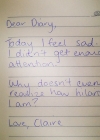 Dear Diary,
Today I feel sad.
I didn't get enough
attention.
Why doesn't everyone
realize how hilarious
I am?
Love, Claire